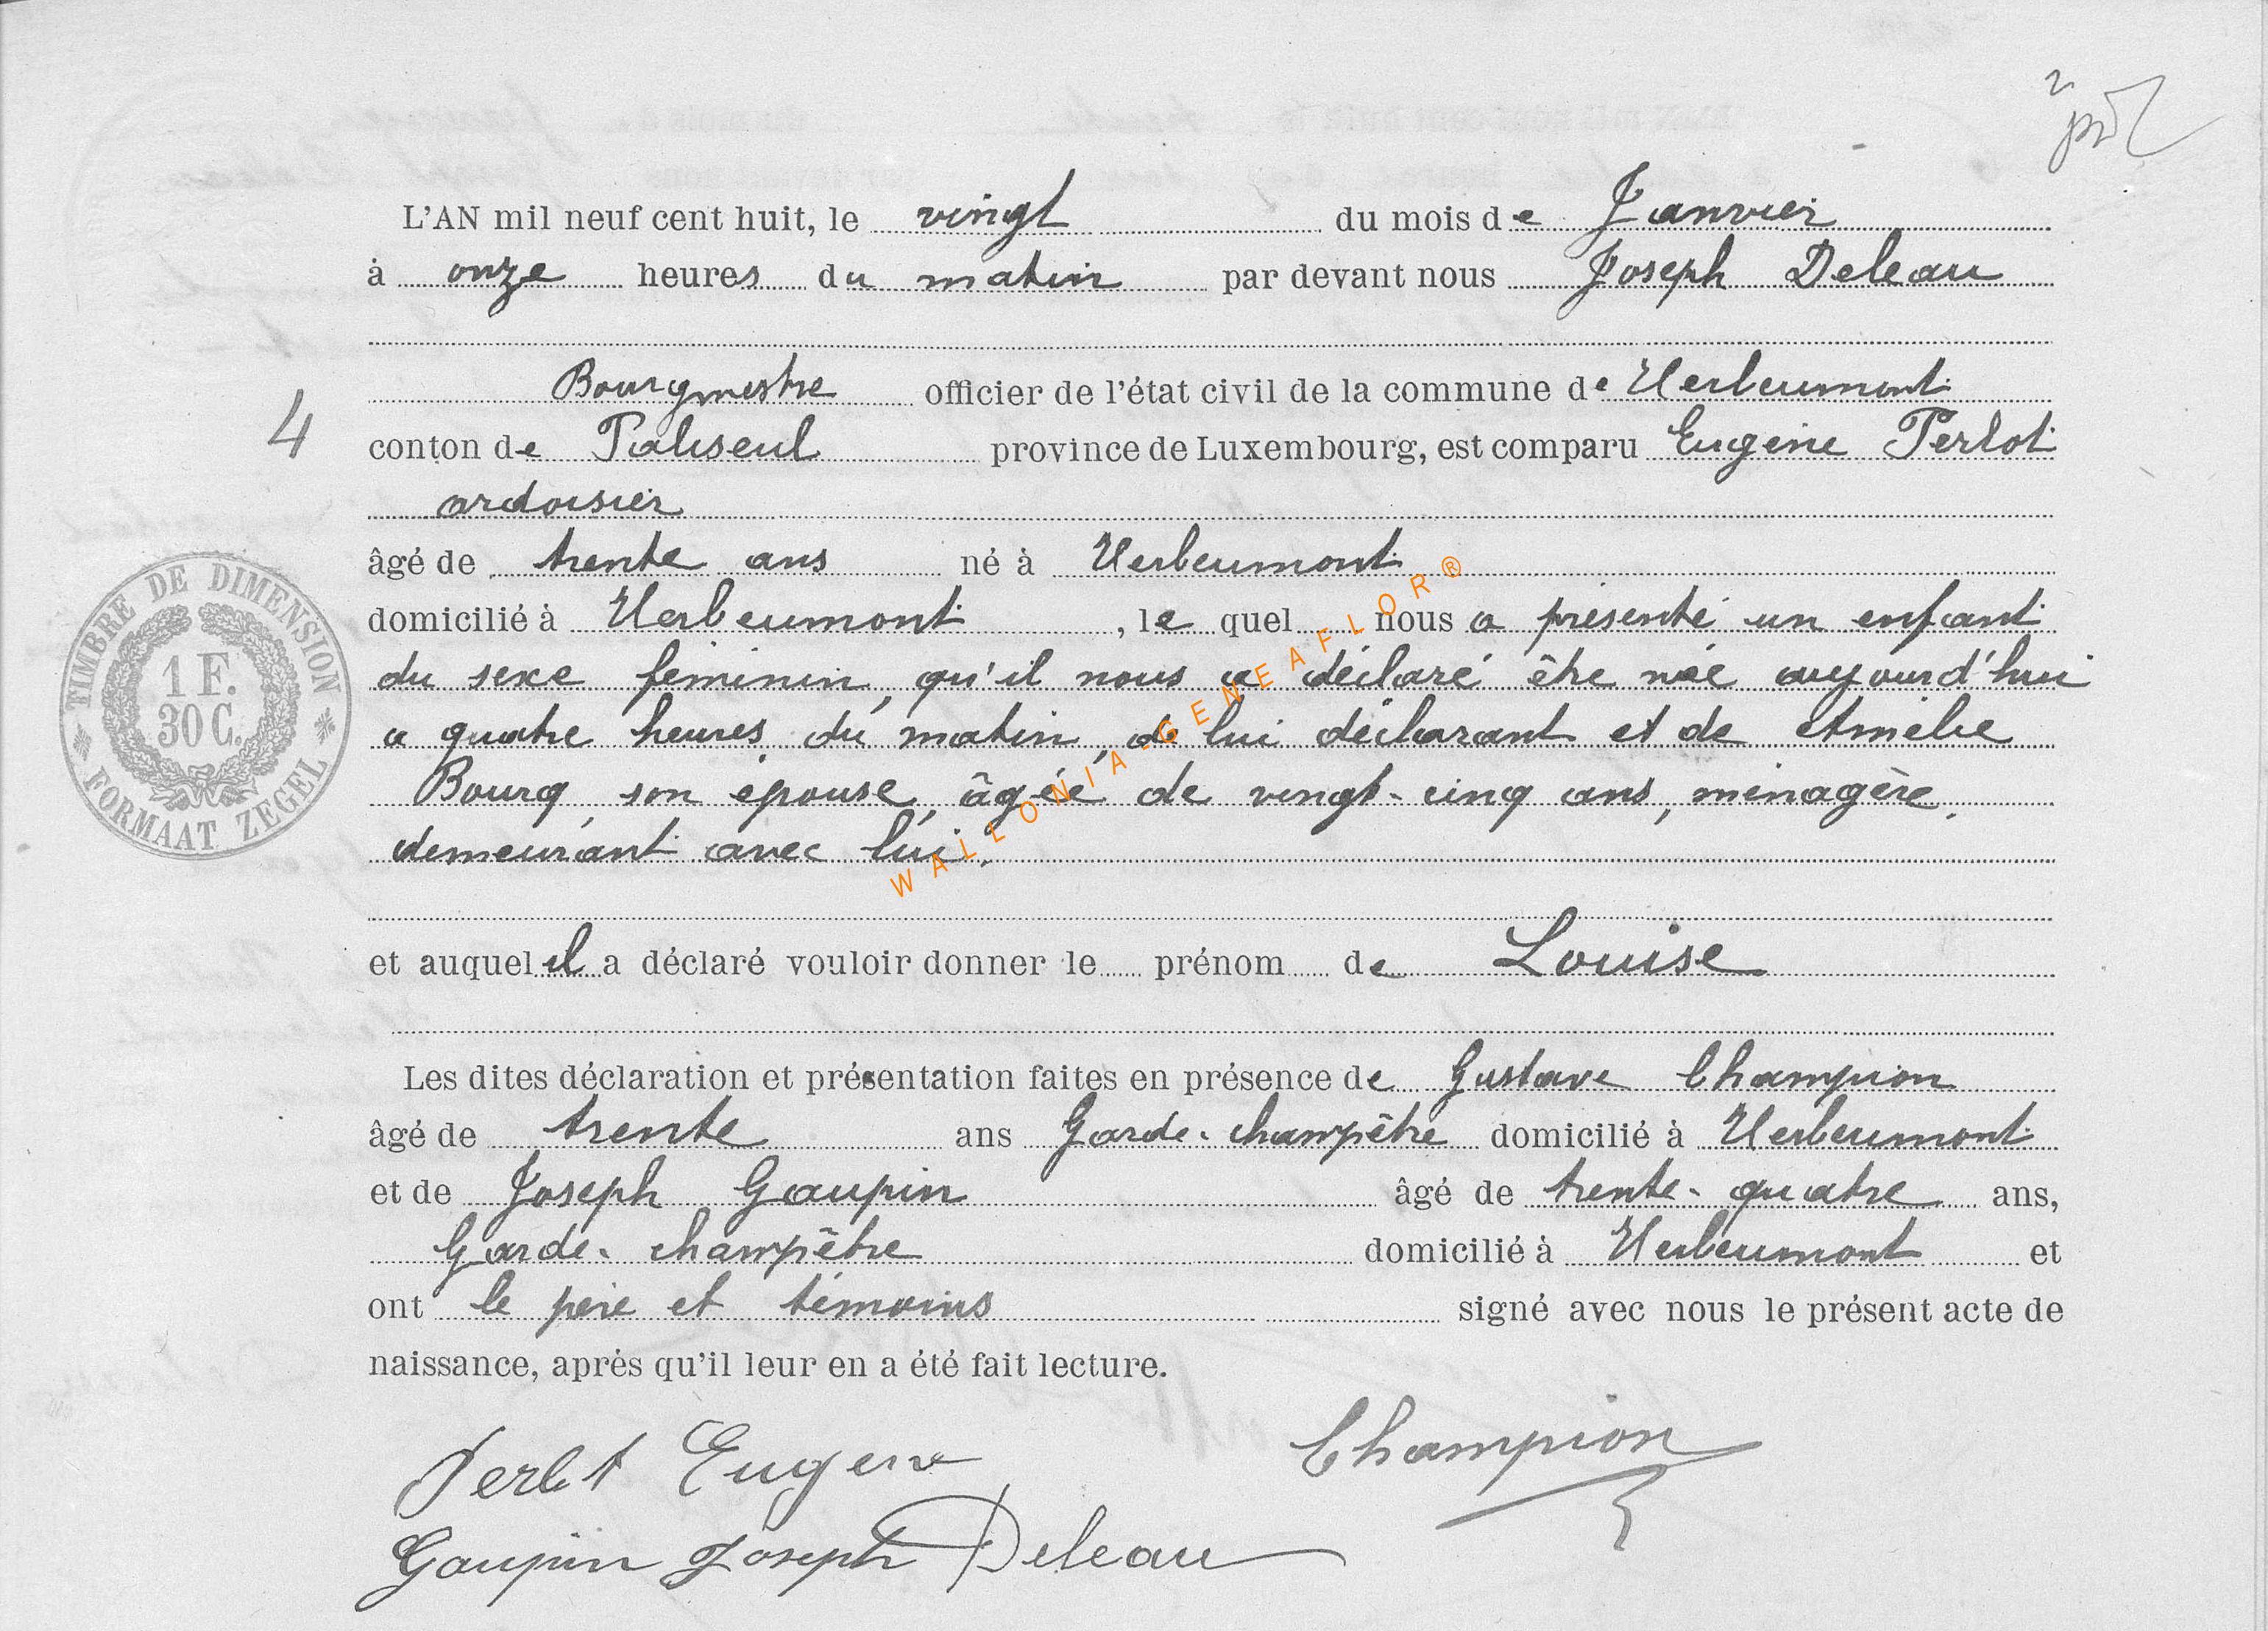 L'AN mil neuf cent huit, le vingt du mois de Janvier
à onze heures du matin par devant nous Joseph Deleau
Bourgmestre officier de l'état civil de la commune de Herbeumont
4
conton de Paliseul province de Luxembourg, est comparu Eugène Perlot
ardoisier
âgé de trente ans né à Herbeumont
domicilié à Herbeumont, le quel nous a présenté un enfant
du sexe féminin, qu'il nous a déclaré être née aujourd'hui
a quatre heures du matin, de lui déclarant et de Amélie
Bourg, son épouse, âgée de vingt-cinq ans, ménagère,
demeurant avec lui.
et auquel il a déclaré vouloir donner le prénom de Louise
Les dites déclaration et présentation faites en présence de Gustave Champion
âgé de trente ans Garde-champêtre domicilié à Herbeumont
et de Joseph Gaupin âgé de trente-quatre ans,
Garde-champêtre domicilié à Herbeumont et
ont le père et témoins signé avec nous le présent acte de
naissance, après qu'il leur en a été fait lecture.
Perlot Eugène
Champion
Gaupin Joseph Deleau
TIMBRE DE DIMENSION
1 F.
30 C.
FORMAAT ZEGEL
WALLONIA-GENEAFLOR®